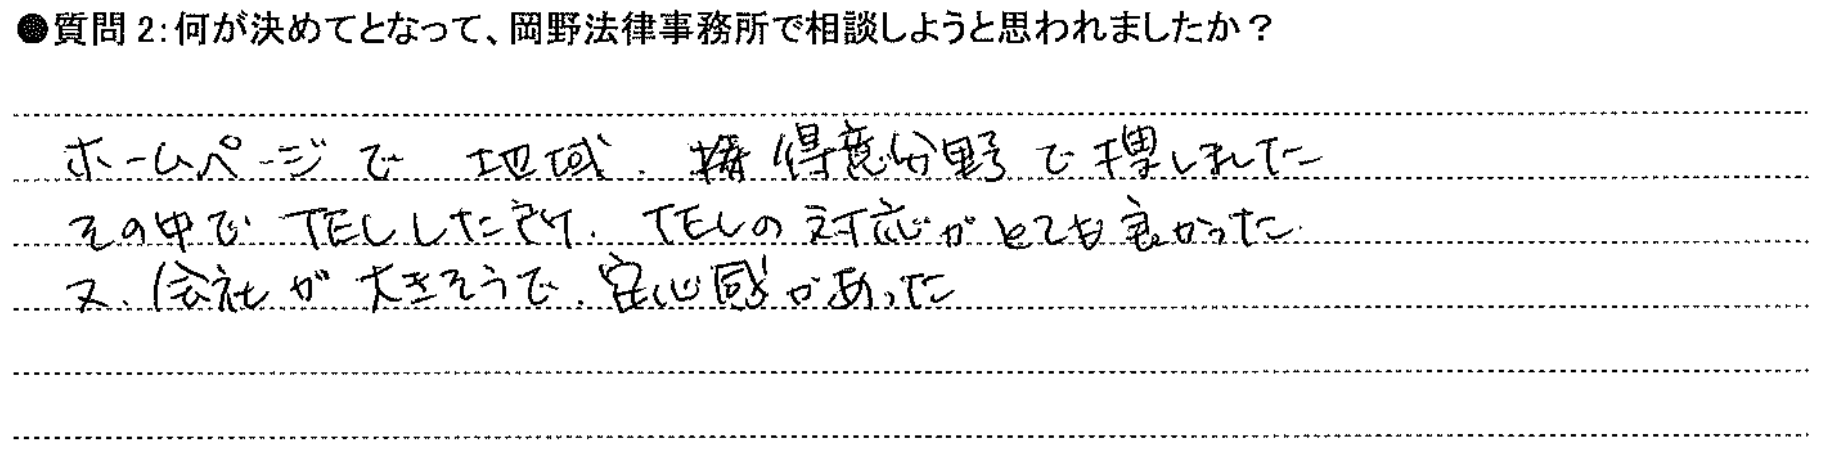 ●質問2:何が決めてとなって、岡野法律事務所で相談しようと思われましたか?
ホームページで 地域、得意分野で探しました
その中で TELした所、TELの対応がとても良かった。
又、会社が大きそうで、安心感があった